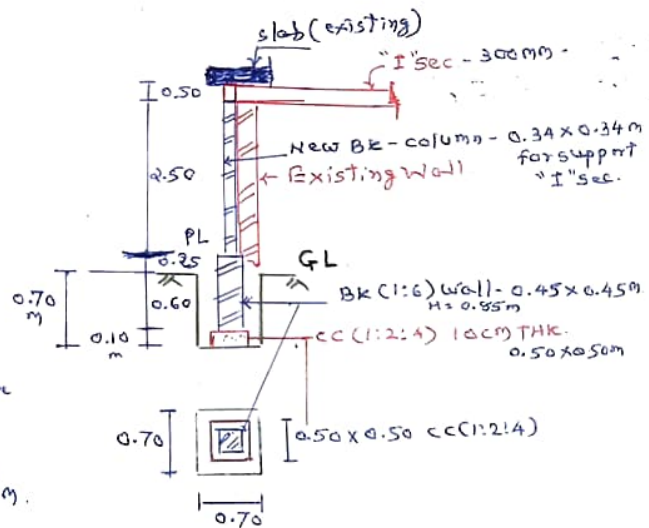 slab (existing)
"I" sec - 300 mm -
0.50
New Bk - column - 0.34 x 0.34 m
for support
"I" sec.
2.50
Existing Wall
PL
0.25
GL
0.70
m
0.60
Bk (1:6) Wall - 0.45 x 0.45 m
H = 0.85 m
0.10
m
CC (1:2:4) 10 CM THK.
0.50 x 0.50 m
0.70
0.50 x 0.50 CC (1:2:4)
m.
0.70